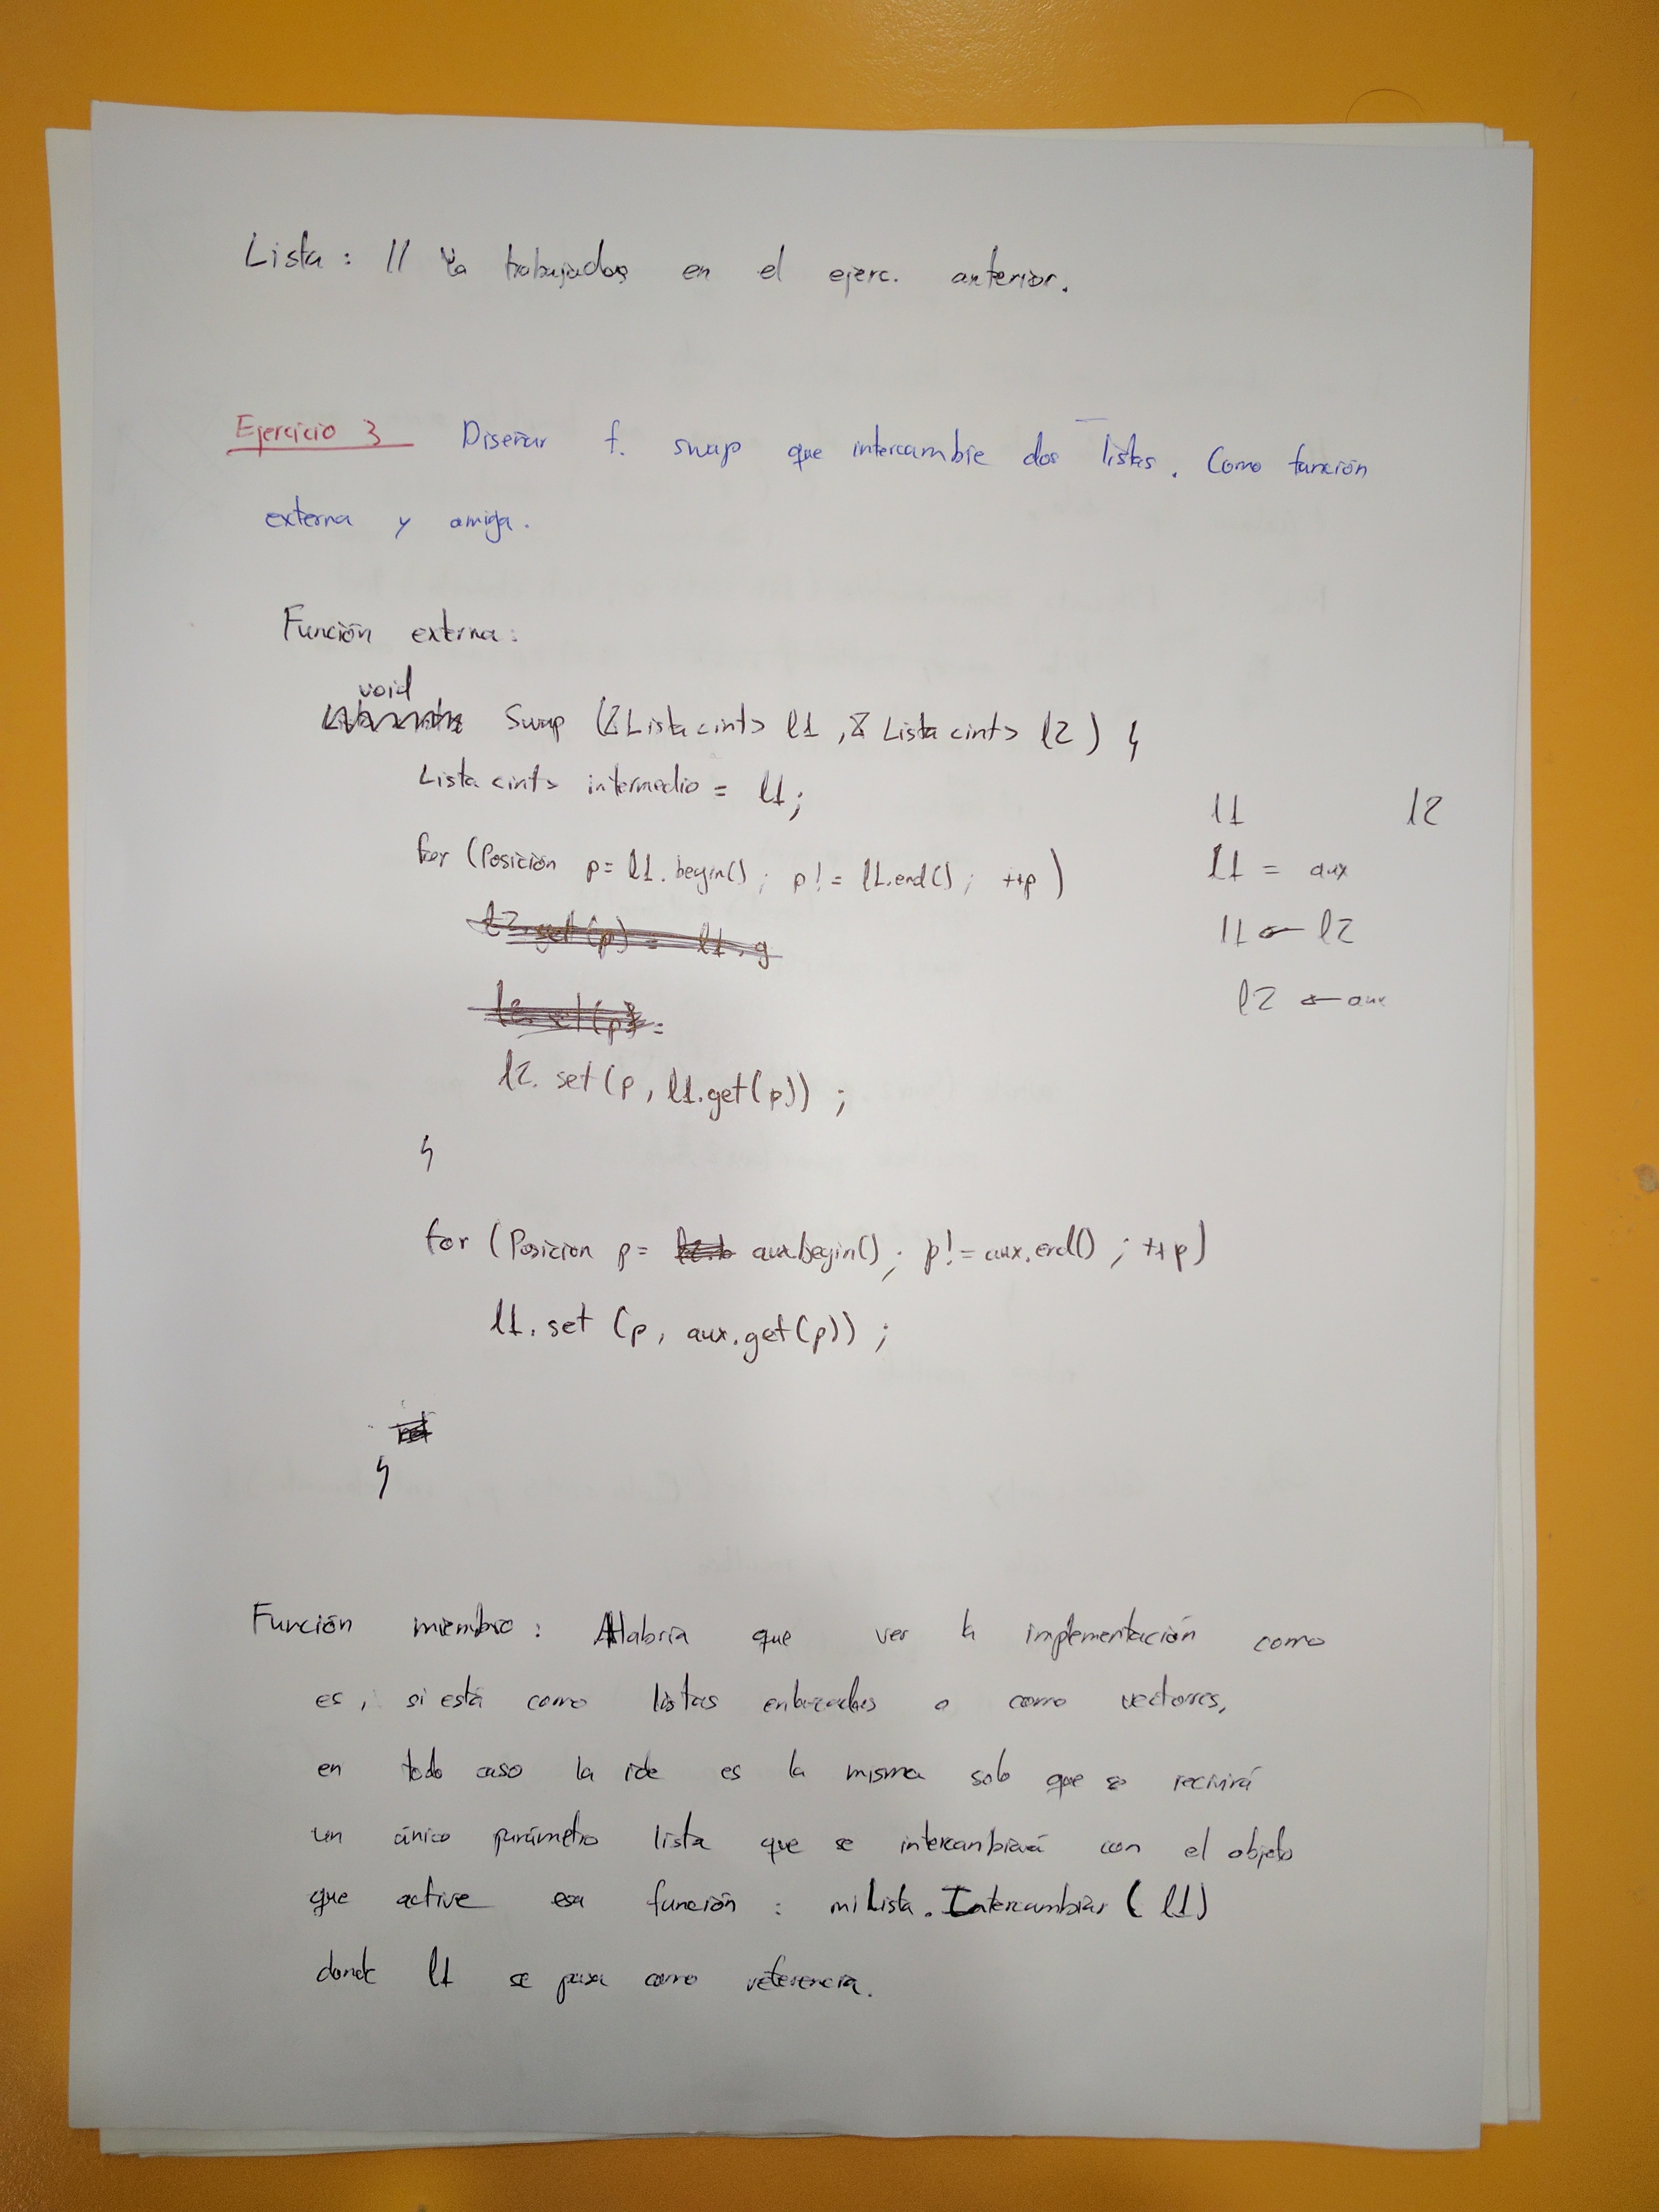 Lista : // Ya trabajados en el ejerc. anterior.
Ejercicio 3 Diseñar f. swap que intercambie dos listas. Como función
externa y amiga.
Función externa :
void
Swap (& Lista<int> l1 , & Lista<int> l2 ) {
Lista<int> intermedio = l1 ;
for (Posición p = l1.begin() ; p != l1.end() ; ++p )
l2. set (p , l1.get(p)) ;
}
for ( Posicion p = aux.begin() ; p != aux.end() ; ++p )
l1. set (p , aux.get(p)) ;
}
l1 l2
l1 = aux
l1 ← l2
l2 ← aux
Función miembro : Habria que ver la implementación como
es, si está como listas enlazadas o como vectores,
en todo caso la ide es la misma solo que se recivirá
un único parámetro lista que se intercambiará con el objeto
que active esa función : mi Lista . Intercambiar ( l1 )
donde l1 se pasa como referencia.